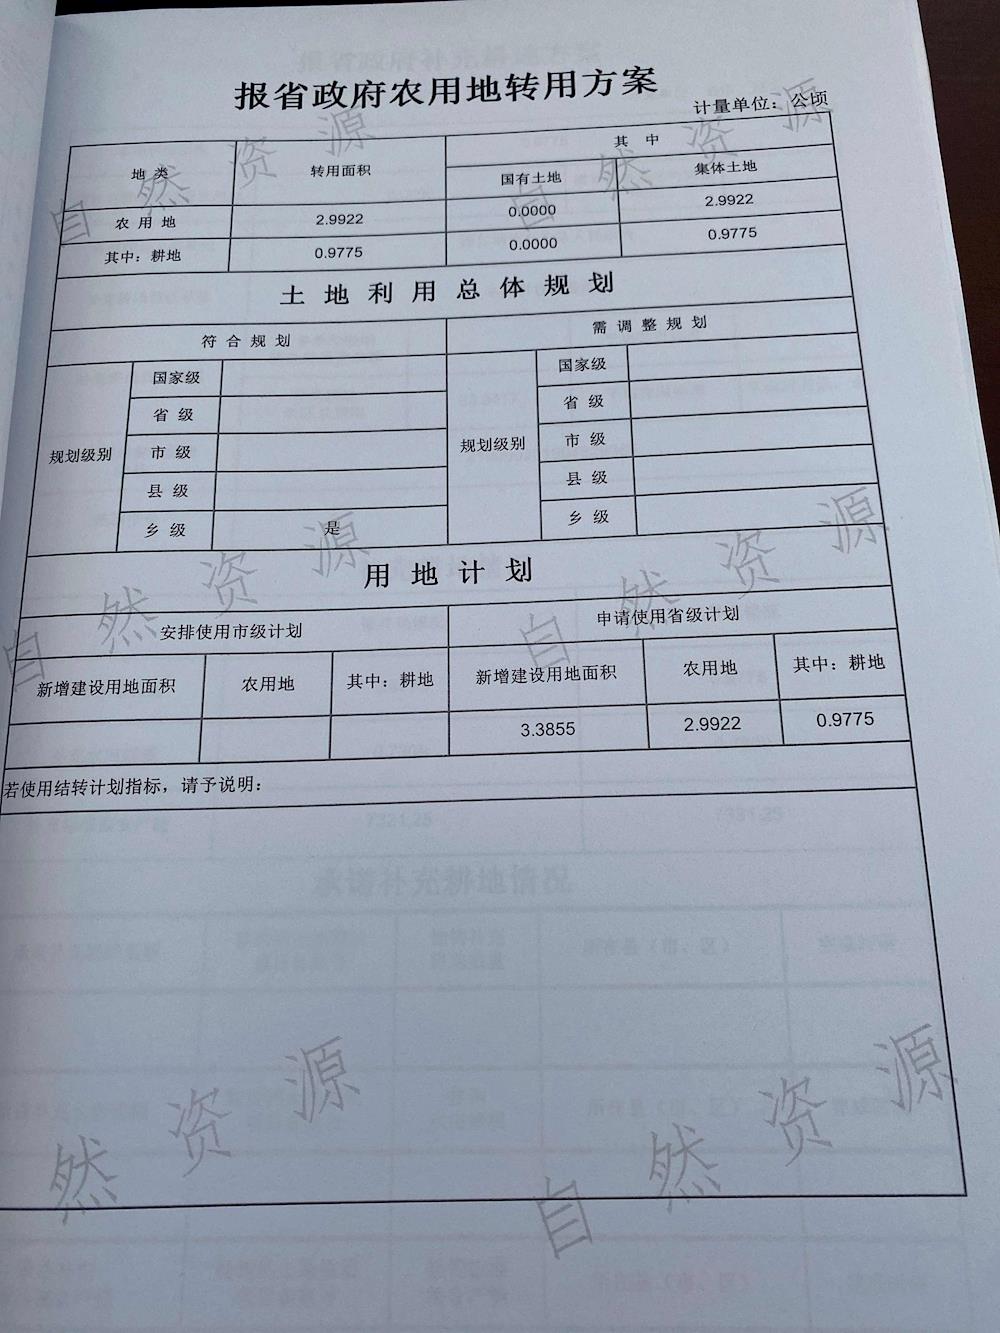 报省政府农用地转用方案
计量单位：公顷
地 类 转用面积 其 中
国有土地 集体土地
农 用 地 2.9922 0.0000 2.9922
其中：耕地 0.9775 0.0000 0.9775
土 地 利 用 总 体 规 划
符 合 规 划 需 调 整 规 划
规划级别 国家级 规划级别 国家级
省 级 省 级
市 级 市 级
县 级 县 级
乡 级 是 乡 级
用 地 计 划
安排使用市级计划 申请使用省级计划
新增建设用地面积 农用地 其中：耕地 新增建设用地面积 农用地 其中：耕地
3.3855 2.9922 0.9775
若使用结转计划指标，请予说明：
自然资源
自然资源
自然资源
自然资源
然资源
自然资源